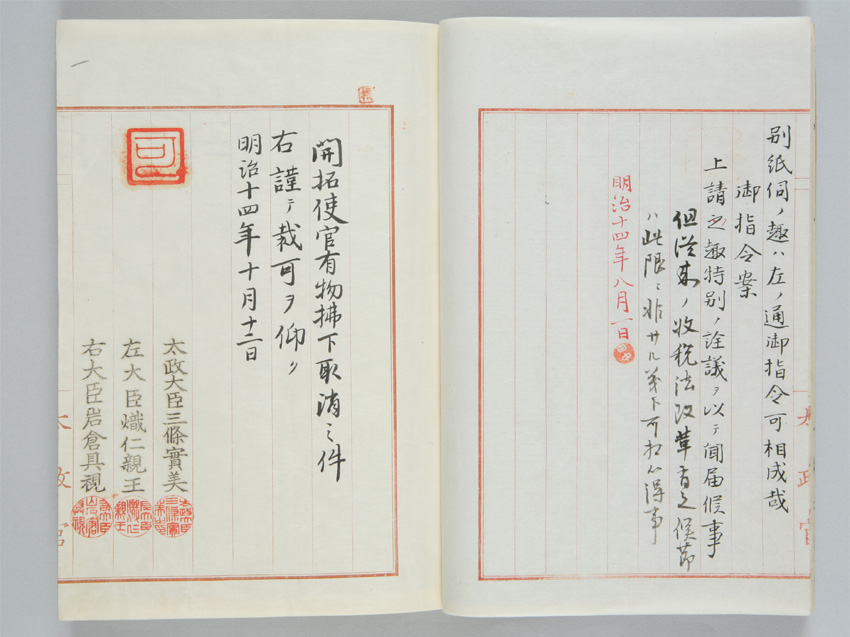 別紙伺ノ趣ハ左ノ通御指令可相成哉
御指令案
上請之趣特別ノ詮議ヲ以テ聞届候事
但従来ノ収税法改革有之候節
ハ此限ニ非サル儀ト可相心得事
明治十四年八月一日
太政官
開拓使官有物拂下取消ノ件
右謹テ裁可ヲ仰ク
明治十四年十月十二日
可
太政大臣三條實美
左大臣熾仁親王
右大臣岩倉具視
太政官